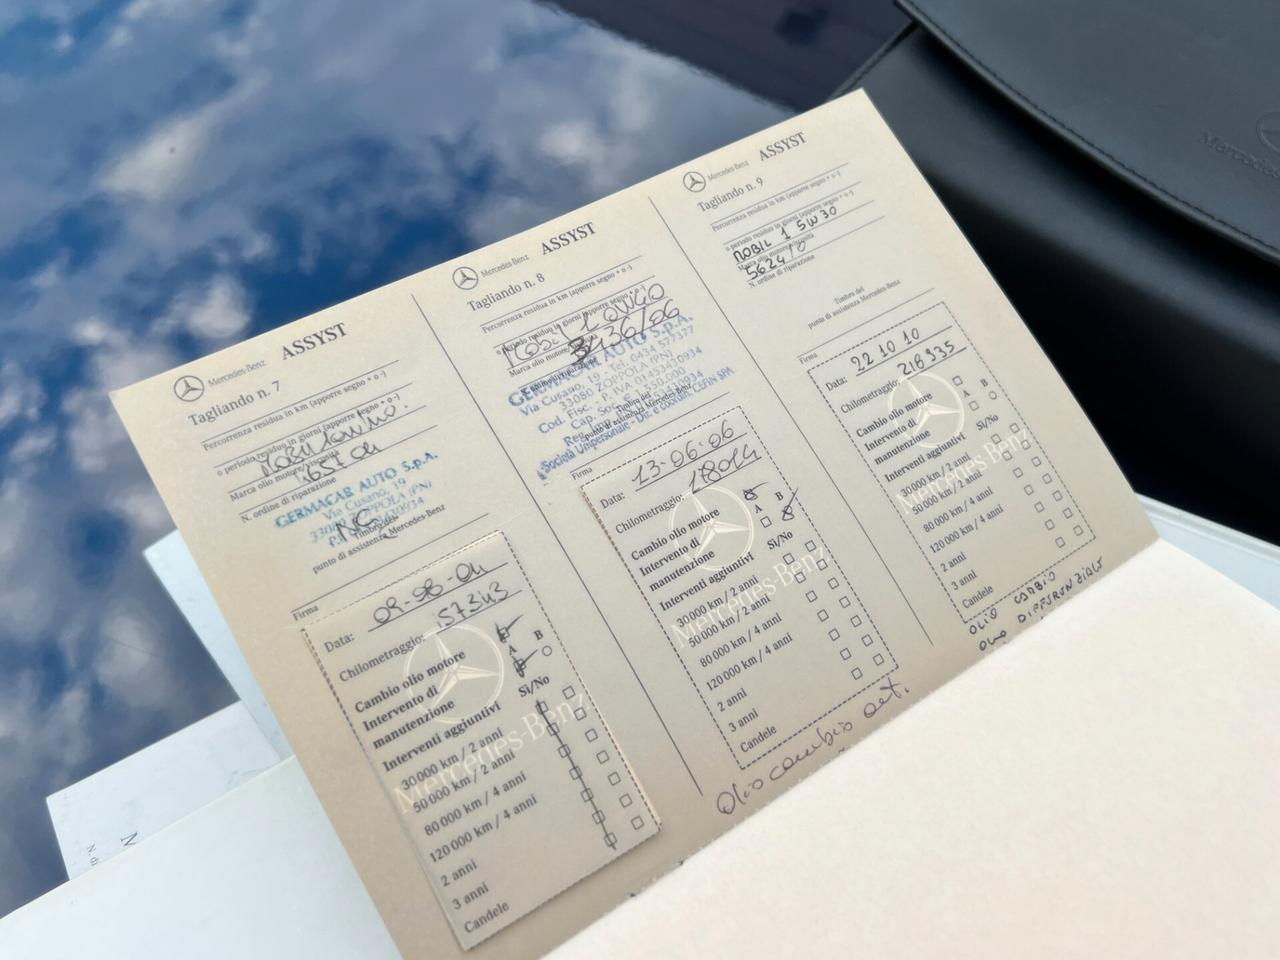 Mercedes-Benz ASSYST
Tagliando n. 7
Percorrenza residua in km (apporre segno + o -)
o periodo residuo in giorni (apporre segno + o -)
Marca olio motore/viscosità
N. ordine di riparazione
GERMACAR AUTO S.p.A.
Via Cusano, 19
ZOPPOLA (PN)
Timbro del
punto di assistenza Mercedes-Benz
Firma
Data: 09-08-04
Chilometraggio: 157343
Cambio olio motore
A B
Intervento di
manutenzione
Interventi aggiuntivi Sì/No
30 000 km / 2 anni
50 000 km / 2 anni
80 000 km / 4 anni
120 000 km / 4 anni
2 anni
3 anni
Candele
Mercedes-Benz
Mercedes-Benz ASSYST
Tagliando n. 8
Percorrenza residua in km (apporre segno + o -)
o periodo residuo in giorni (apporre segno + o -)
Mobil 1 0W40
Marca olio motore/
3436/06
GERMACAR AUTO S.p.A.
Via Cusano, 19 - Tel. 0434 577377
33080 ZOPPOLA (PN)
Cod. Fisc. - P. IVA 01453430934
Cap. Soc. € 1.550.000
Timbro del
punto di assistenza Mercedes-Benz
Società Unipersonale - Dir. e coordin. CEFIN SPA
Firma
Data: 13-06-06
Chilometraggio: 178014
Cambio olio motore
A B
Intervento di
manutenzione
Interventi aggiuntivi Sì/No
30 000 km / 2 anni
50 000 km / 2 anni
80 000 km / 4 anni
120 000 km / 4 anni
2 anni
3 anni
Candele
Mercedes-Benz
Olio cambio aut.
Mercedes-Benz ASSYST
Tagliando n. 9
Percorrenza residua in km (apporre segno + o -)
o periodo residuo in giorni (apporre segno + o -)
MOBIL 1 5W30
Marca olio motore/viscosità
5624/0
N. ordine di riparazione
Timbro del
punto di assistenza Mercedes-Benz
Firma
Data: 22 10 10
Chilometraggio: 216335
Cambio olio motore
A B
Intervento di
manutenzione
Interventi aggiuntivi Sì/No
30 000 km / 2 anni
50 000 km / 2 anni
80 000 km / 4 anni
120 000 km / 4 anni
2 anni
3 anni
Candele
Mercedes-Benz
OLIO CAMBIO
OLIO DIFFERENZIALE